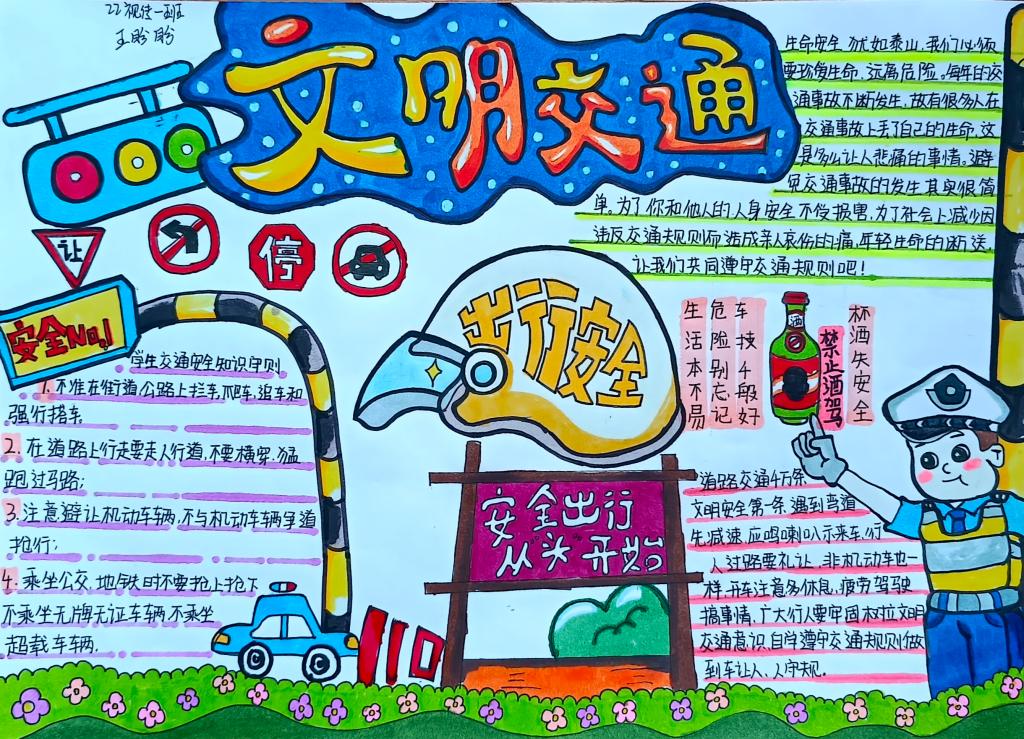 22视传一班
王盼盼
文明交通
生命安全 犹如泰山,我们必须
要珍爱生命,远离危险。每年的交
通事故不断发生,故有很多人在
交通事故上丢了自己的生命,这
是多么让人悲痛的事情。避
免交通事故的发生其实很简
单。为了你和他人的人身安全不受损害,为了社会上减少因
违反交通规则而造成亲人哀伤的痛,年轻生命的断送,
让我们共同遵守交通规则吧!
让
停
安全No.1
学生交通安全知识守则
1.不准在街道公路上拦车,爬车,追车和
强行搭车.
2.在道路上行走要走人行道,不要横穿.猛
跑过马路;
3.注意避让机动车车辆,不与机动车车辆争道
抢行;
4.乘坐公交,地铁时不要抢上抢下
不乘坐无牌无证车车辆不乘坐
超载车车辆.
出行安全
安全出行
从"头"开始
车技4般好
危险别忘记
生活本不易
酒
杯酒失安全
禁止酒驾驾
道路交通4万条
文明安全第一条 遇到弯道
先减速,应鸣喇叭示来车,行
人过路要礼让,非机动车也一
样,开车注意多休息,疲劳驾驶
搞事情,广大行人要牢固树拉文明
交通意识,自学遵守交通规则,做
到车让人、人守规.